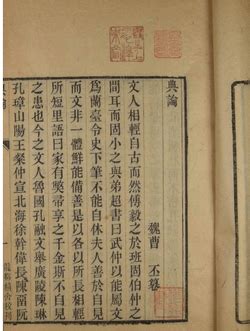 典論
魏曹 丕 譔
文人相輕自古而然傅毅之於班固伯仲之
間耳而固小之與弟超書曰武仲以能屬文
爲蘭臺令史下筆不能自休夫人善於自見
而文非一體鮮能備善是以各以所長相輕
所短里語曰家有獘帚享之千金斯不自見
之患也今之文人魯國孔融文舉廣陵陳琳
孔璋山陽王粲仲宣北海徐幹偉長陳畱阮
典論
一